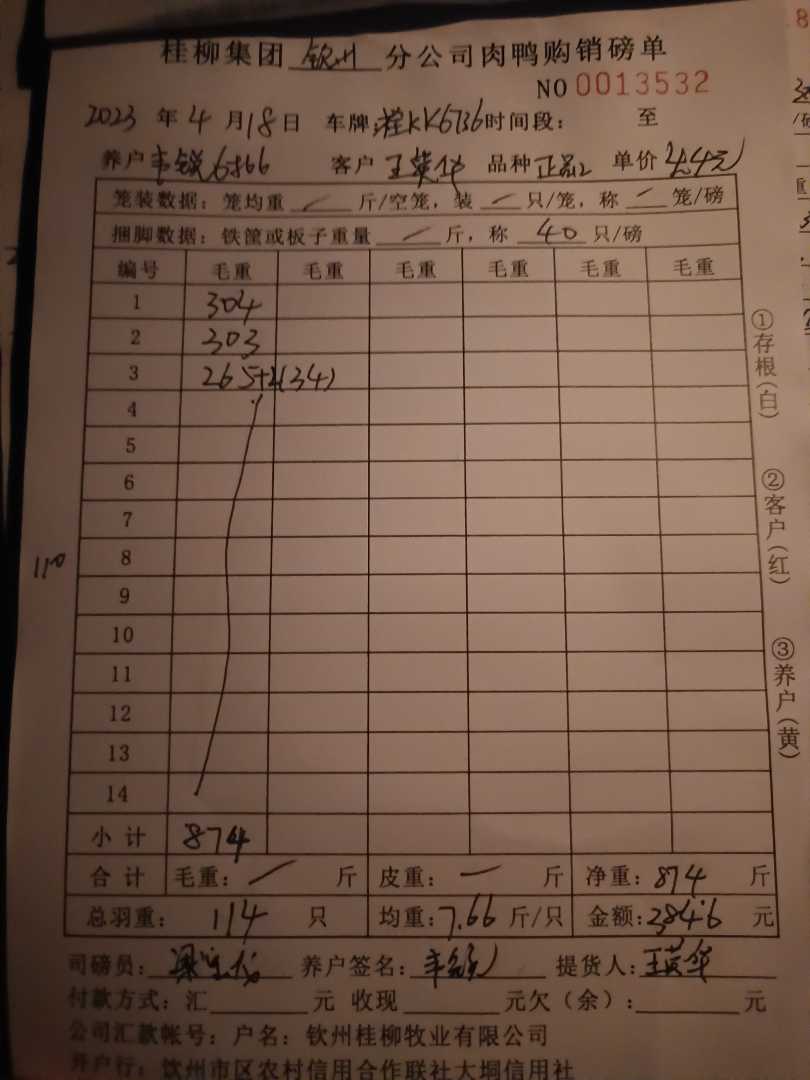 桂柳集团 钦州 分公司肉鸭购销磅单
NO 0013532
2023 年 4 月 18 日 车牌 桂KK6736 时间段： 至
养户 韦锐 客户 王英华 品种 单价 4.4元
笼装数据：笼均重 / 斤/空笼，装 / 只/笼，称 / 笼/磅
捆脚数据：铁筐或板子重量 / 斤，称 40 只/磅
编号 毛重 毛重 毛重 毛重 毛重 毛重
1 304
2 303
3 265+2(34)
4
5
6
7
8
9
10
11
12
13
14
小计 874
合计 毛重： / 斤 皮重： 一 斤 净重：874 斤
总羽重： 114 只 均重：7.66 斤/只 金额：3846 元
司磅员： 养户签名：韦锐 提货人：王英华
付款方式：汇 元 收现 元欠（余）： 元
公司汇款帐号：户名：钦州桂柳牧业有限公司
开户行：钦州市区农村信用合作联社大垌信用社
①存根(白)
②客户(红)
③养户(黄)
110